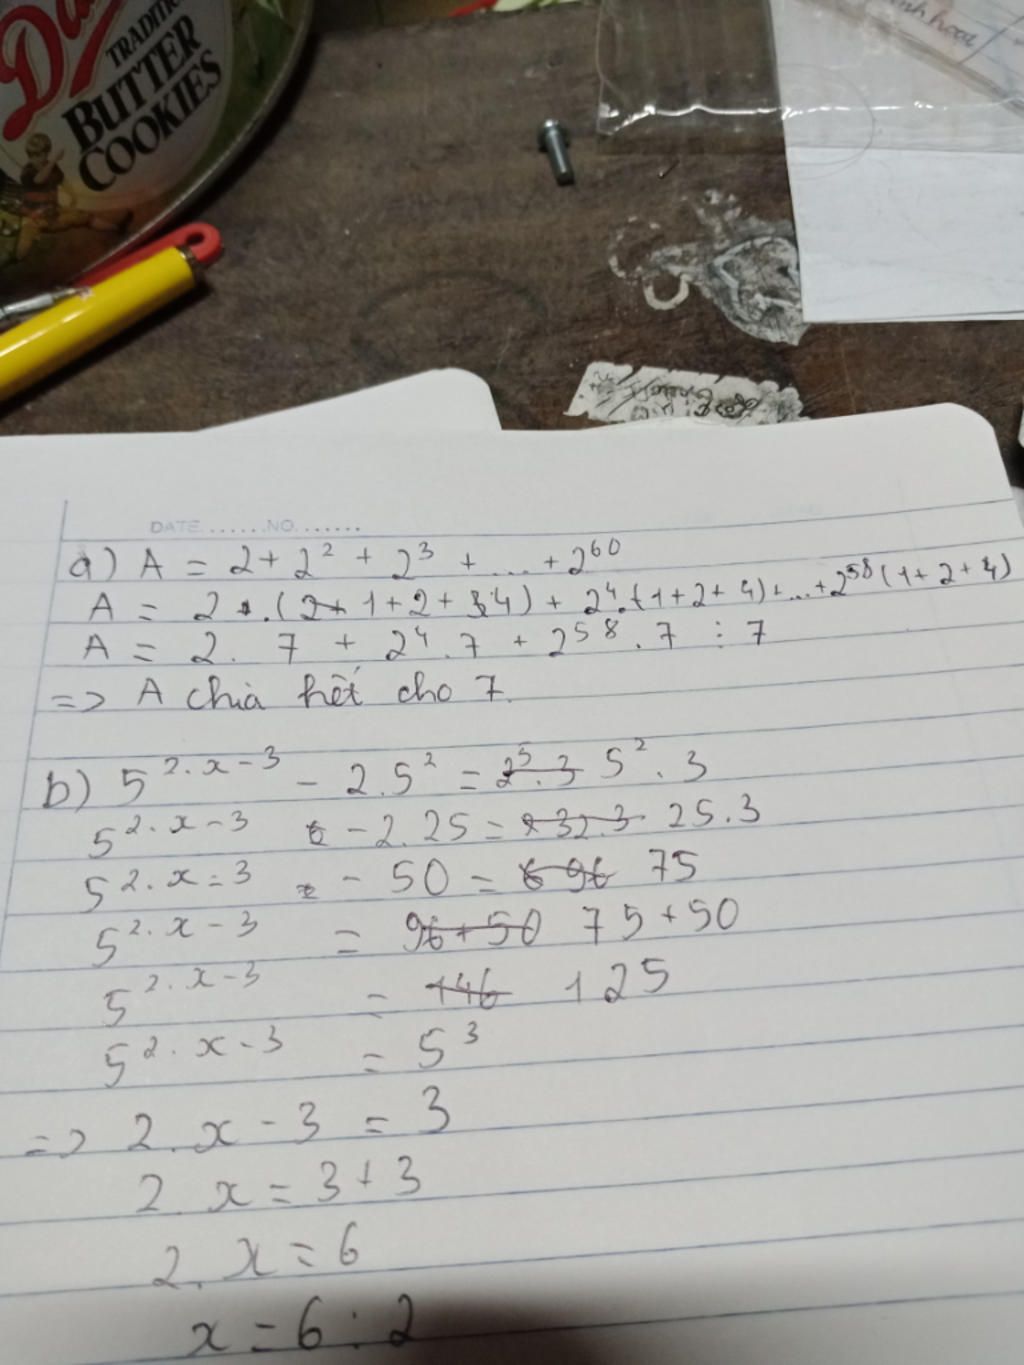 Da
TRADITI
BUTTER
COOKIES
DATE.......NO.......
a) A = 2 + 2² + 2³ + ... + 2⁶⁰
A = 2 . (1+2+4) + 2⁴.(1+2+4)+...+2⁵⁸(1+2+4)
A = 2. 7 + 2⁴.7 + 2⁵⁸.7 ⋮ 7
=> A chia hết cho 7.
b) 5^2.x-3 - 2.5² = 2⁵.3 5².3
5^2.x-3 - 2.25 = 32.3 25.3
5^2.x=3 - 50 = 96 75
5^2.x-3 = 96+50 75+50
5^2.x-3 = 146 125
5^2.x-3 = 5³
=> 2.x-3 = 3
2.x = 3+3
2.x = 6
x = 6:2